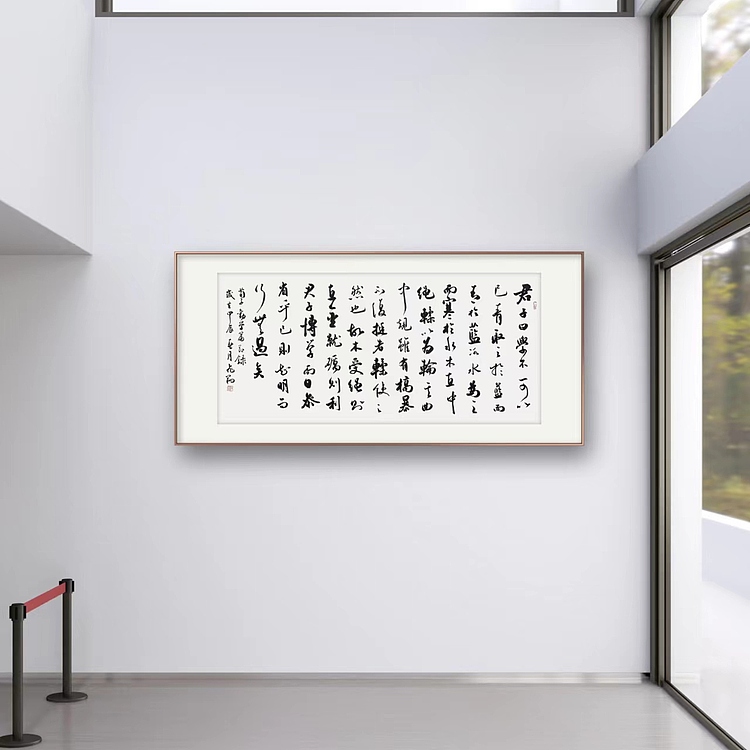 君子曰學不可以
已青取之於藍而
青於藍冰水為之
而寒於水木直中
繩輮以為輪其曲
中規雖有槁暴
不復挺者輮使之
然也故木受繩則
直金就礪則利
君子博學而日參
省乎己則知明而
行無過矣
荀子勸學篇節錄
歲在甲辰